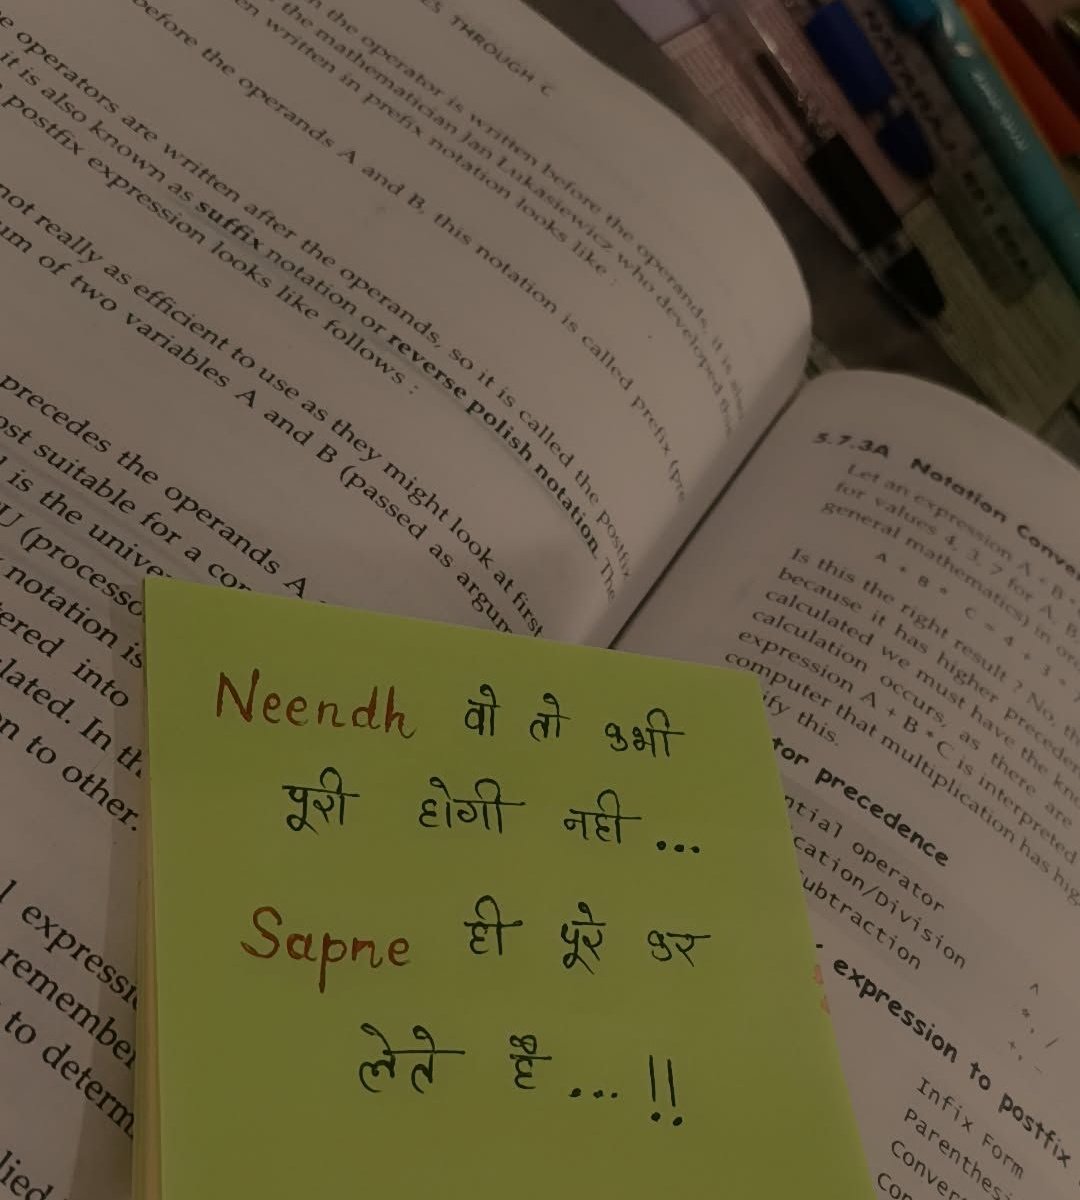 ES THROUGH C
the operator is written before the operands, it is also
the mathematician Jan Lukasiewicz who developed
en written in prefix notation looks like :
before the operands A and B, this notation is called prefix (pre
e operators are written after the operands, so it is called the postfix
it is also known as suffix notation or reverse polish notation. The
postfix expression looks like follows :
not really as efficient to use as they might look at first
um of two variables A and B (passed as argum
precedes the operands A
ost suitable for a cor
is the unive
U (processo
notation is
ered into
lated. In th
n to other.
l expressi
remember
to determ
lied
5.7.3A Notation Conve
Let an expression A + B *
for values 4, 3, 7 for A, B,
general mathematics) in or
A + B * C = 4 + 3 *
Is this the right result ? No, th
because it has higher preceden
calculated we must have the kno
calculation occurs, as there are
expression A + B * C is interpreted
computer that multiplication has hig
ify this.
tor precedence
ntial operator
cation/Division
ubtraction
^
*, /
+, -
expression to postfix
Infix Form
Parenthes
Conver
Con
Neendh वो तो कभी
पूरी होगी नही...
Sapne ही पूरे कर
लेते हैं...!!